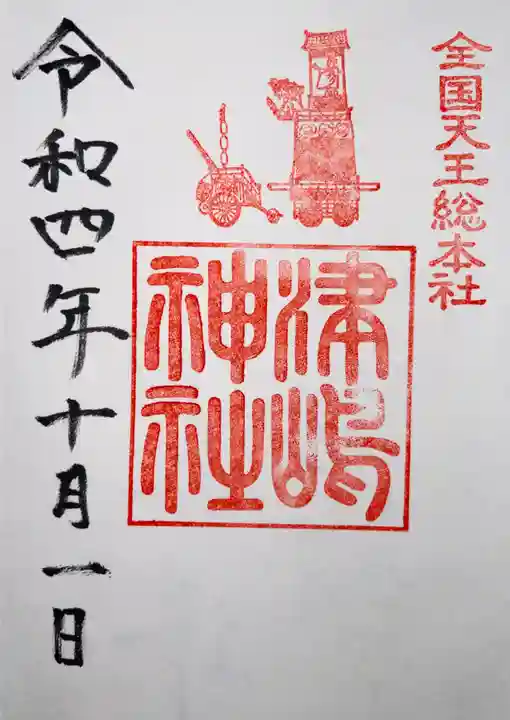 全国天王総本社
津嶋
神社
令和四年十月一日